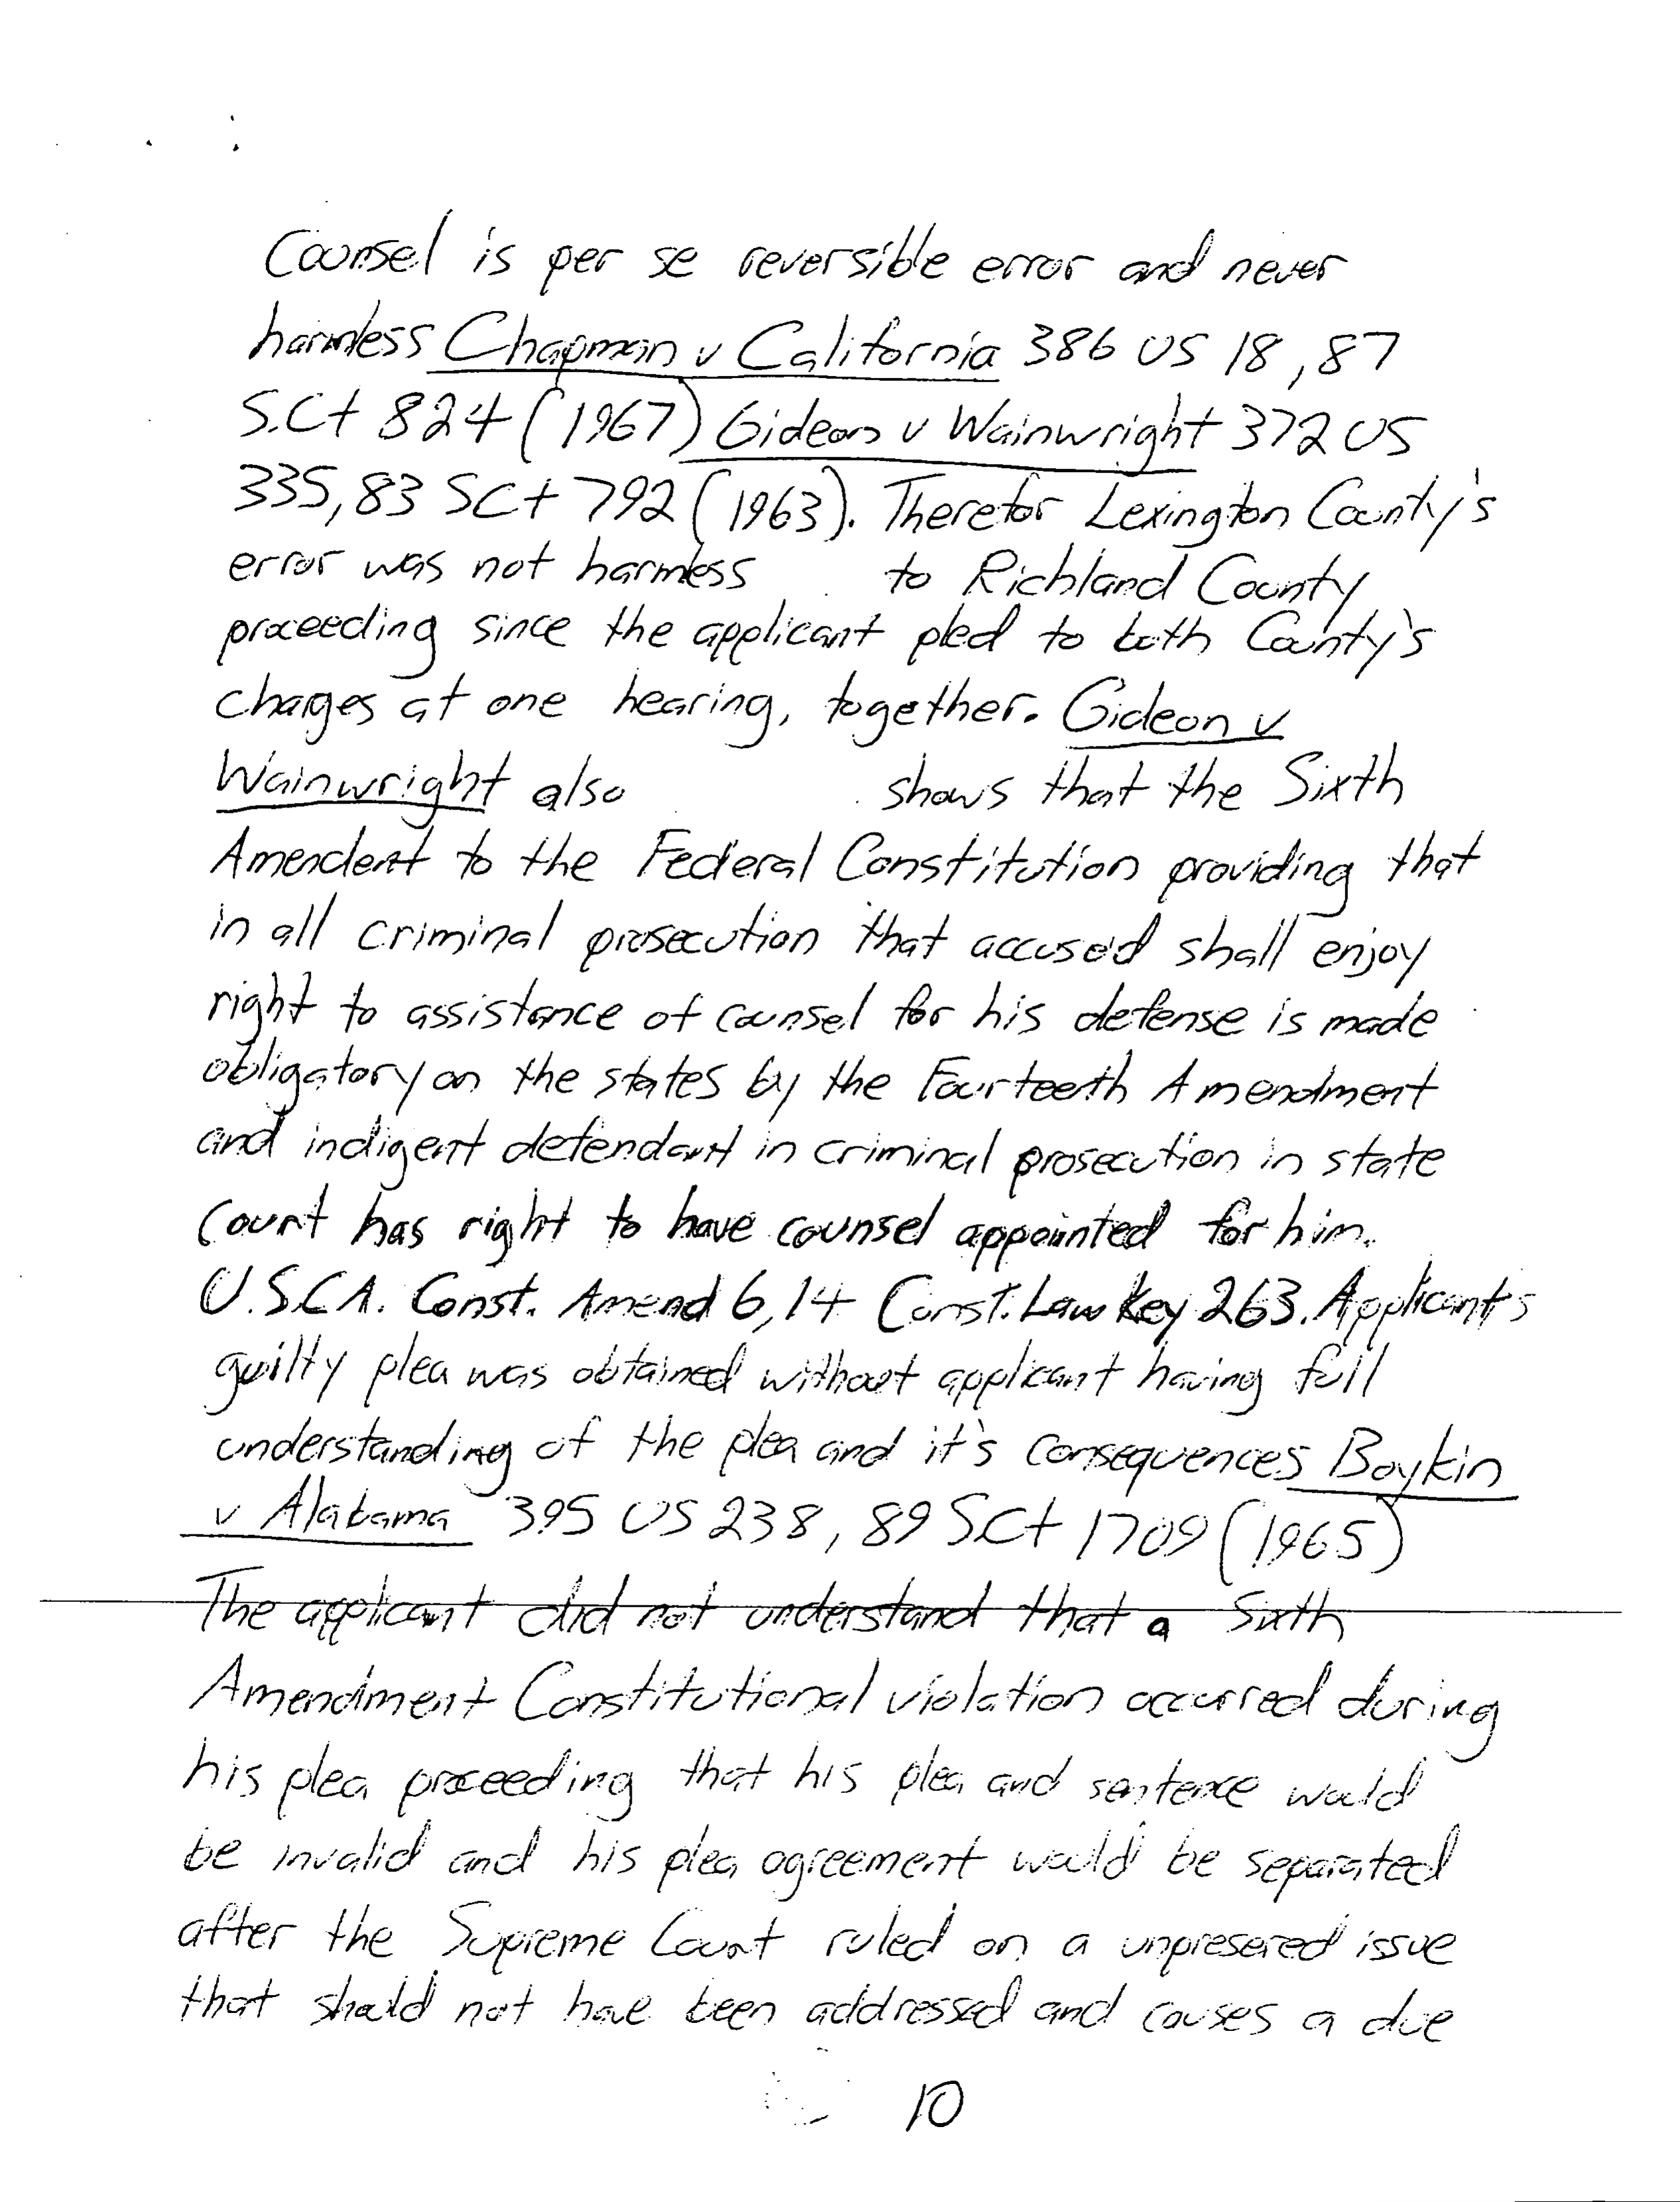 Counsel is per se reversible error and never
harmless Chapman v California 386 US 18, 87
S.Ct 824 (1967) Gideon v Wainwright 372 US
335, 83 SCt 792 (1963). Therefor Lexington County's
error was not harmless to Richland County
proceeding since the applicant pled to both County's
charges at one hearing, together. Gideon v
Wainwright also shows that the Sixth
Amendent to the Federal Constitution providing that
in all criminal prosecution that accused shall enjoy
right to assistance of counsel for his defense is made
obligatory on the states by the Fourteeth Amendment
and indigent defendant in criminal prosecution in state
Court has right to have counsel appointed for him.
U.S.C.A. Const. Amend 6, 14 Const. Law Key 263. Applicant's
guilty plea was obtained without applicant having full
understanding of the plea and it's consequences Boykin
v Alabama 395 US 238, 89 SCt 1709 (1965)
The applicant did not understand that a Sixth
Amendment Constitutional violation occurred during
his plea proceeding that his plea and sentence would
be invalid and his plea agreement would be separated
after the Supreme Court ruled on a unpresered issue
that should not have been addressed and causes a due
10